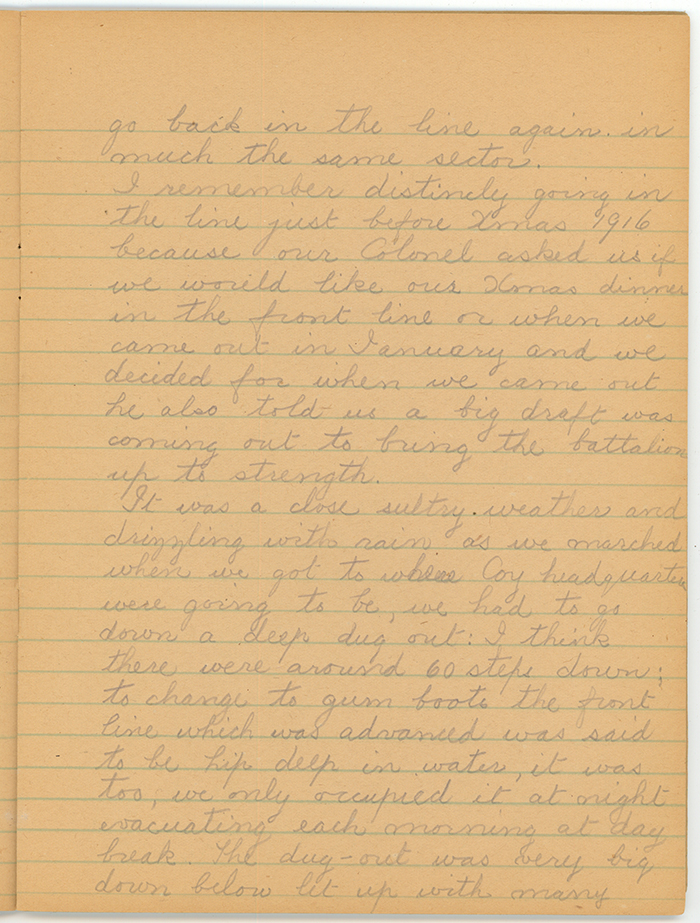 go back in the line again. in
much the same sector.
I remember distincly going in
the line just before Xmas 1916
because our Colonel asked us if
we would like our Xmas dinner
in the front line or when we
came out in January and we
decided for when we came out
he also told us a big draft was
coming out to bring the battalion
up to strength.
It was a close sultry weather and
drizzling with rain as we marched
when we got to where Coy headquarters
were going to be, we had to go
down a deep dug out: I think
there were around 60 steps down;
to change to gum boots the front
line which was advanced was said
to be hip deep in water, it was
too, we only occupied it at night
evacuating each morning at day
break. The dug-out was very big
down below lit up with many